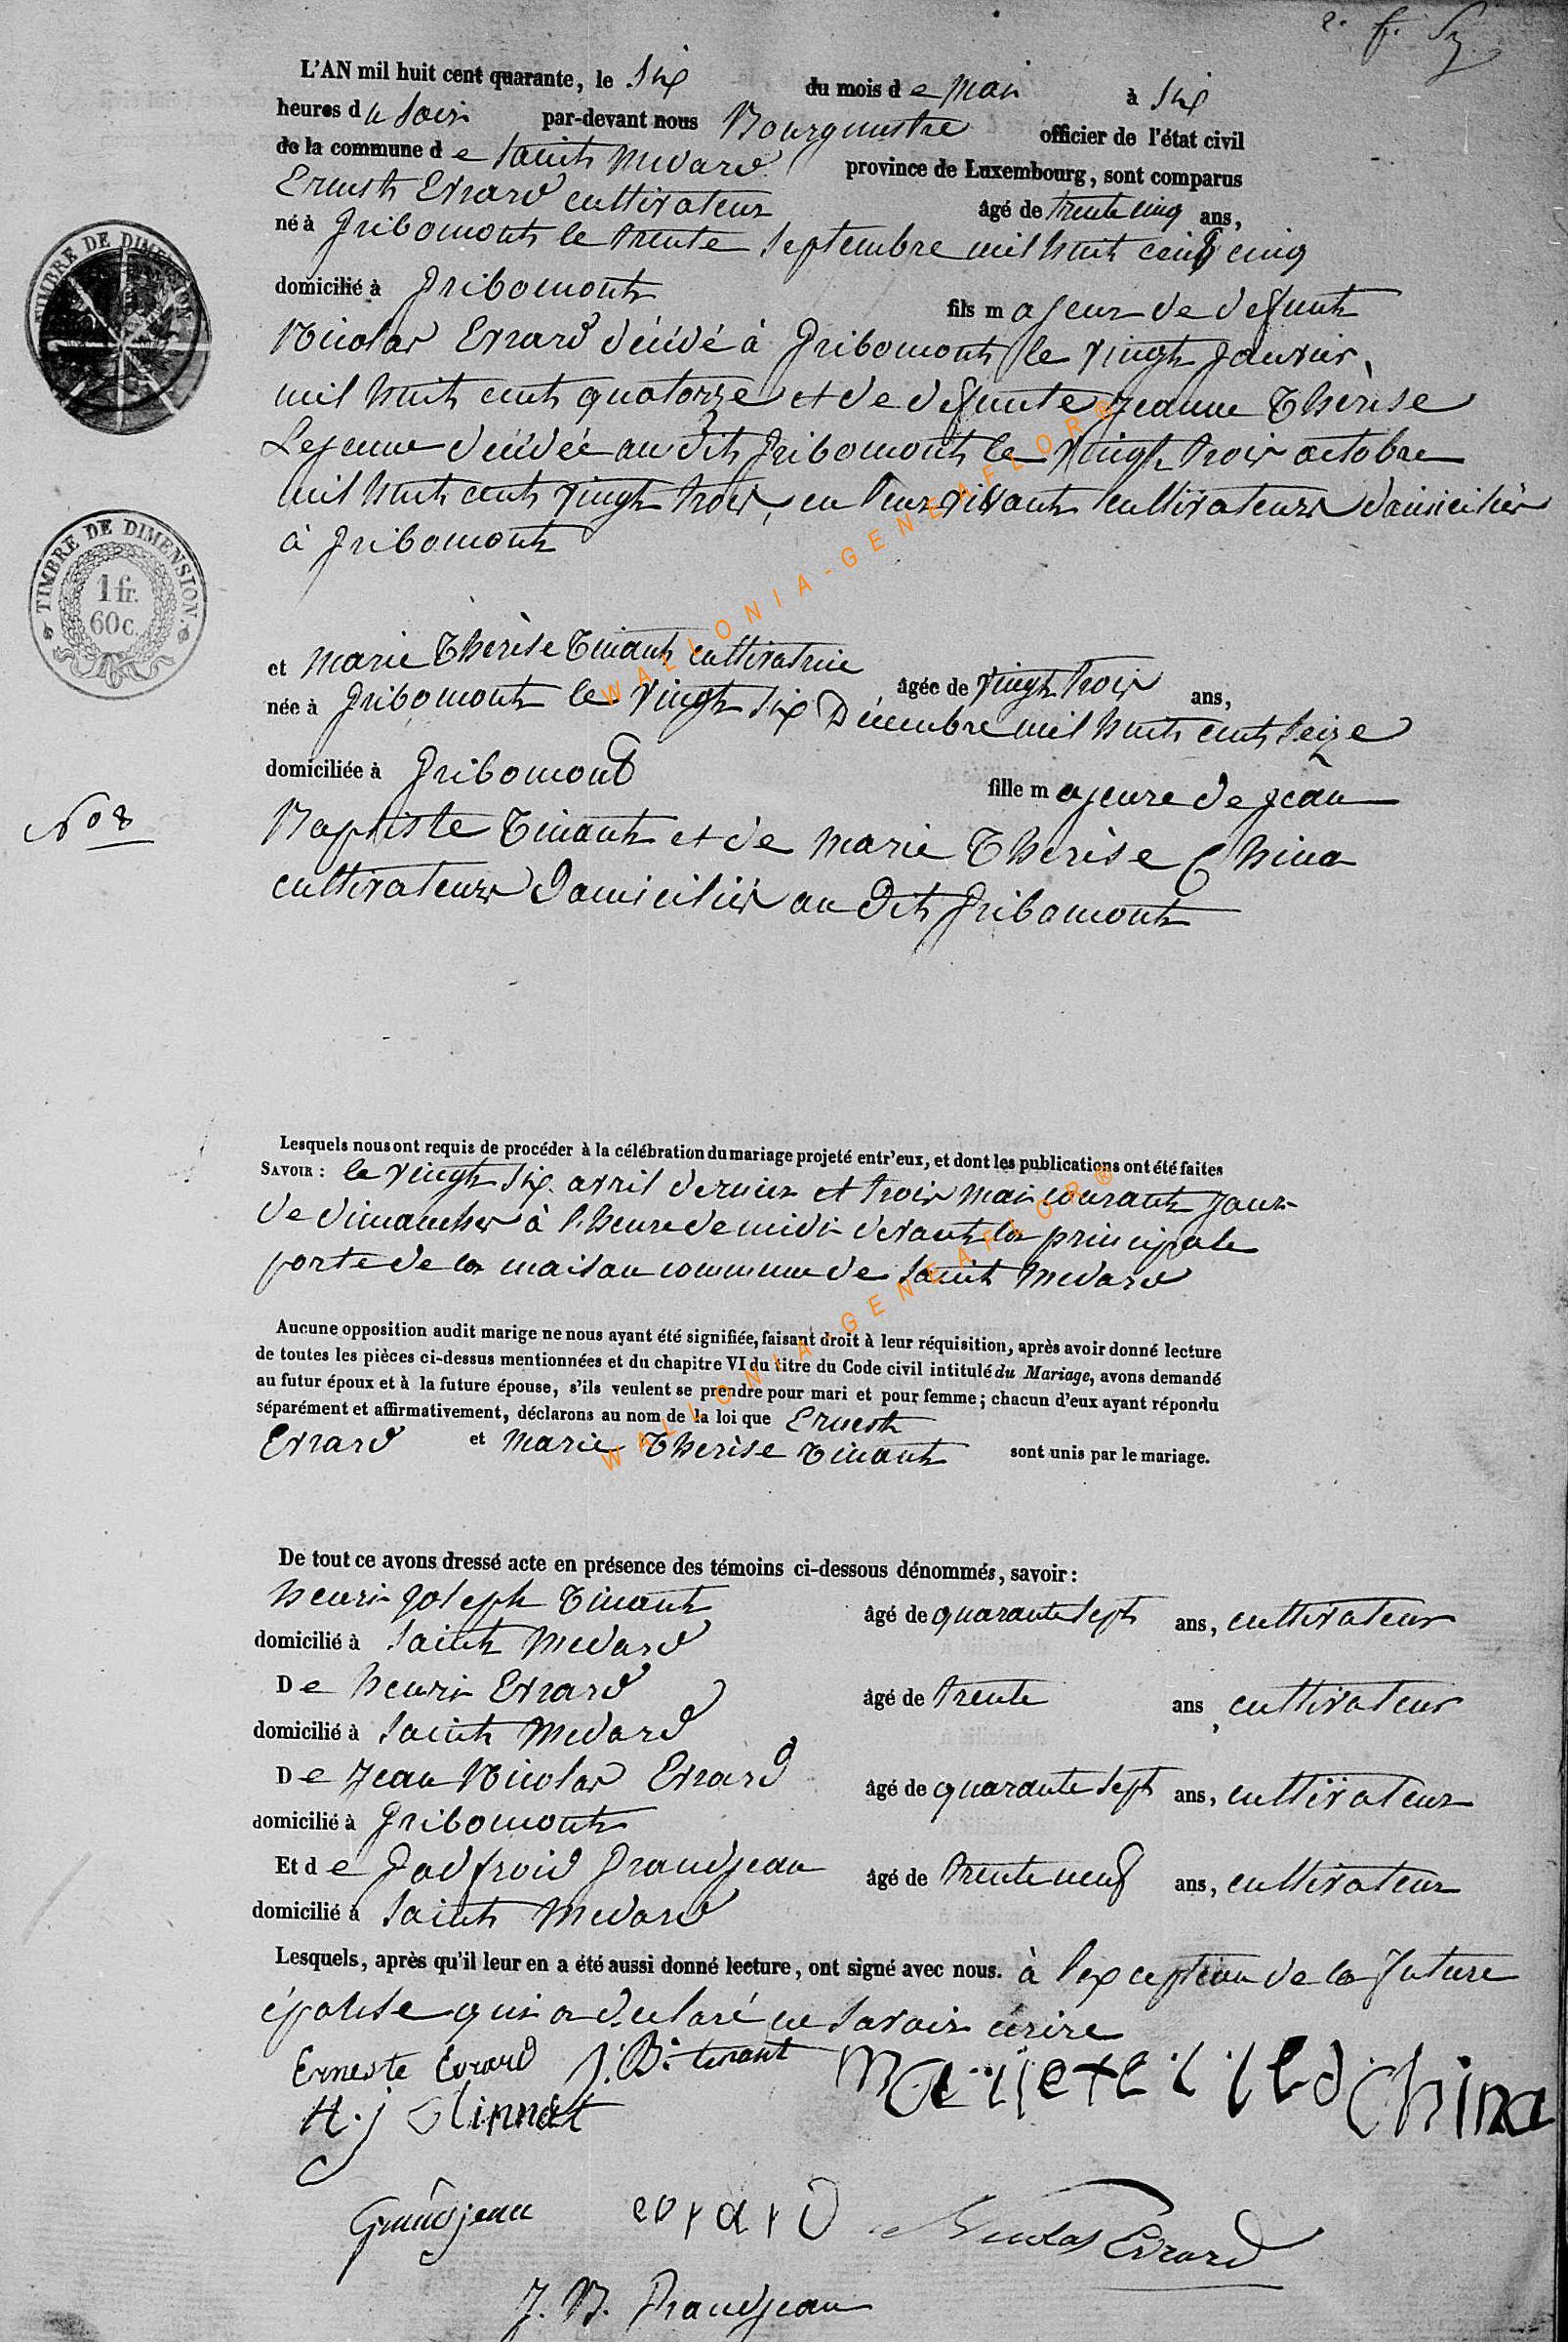 L'AN mil huit cent quarante, le Six du mois de Mai à Six
heures du Soir par-devant nous Bourgmestre officier de l'état civil
de la commune de Saint Medard province de Luxembourg, sont comparus
Ernest Evrard cultivateur âgé de trente cinq ans,
né à Gribomont le trente Septembre mil huit cent cinq
domicilié à Gribomont fils majeur de defunt
Nicolas Evrard décédé à Gribomont le vingt Janvier,
mil huit cent quatorze et de defunte Jeanne Thérèse
Lejeune décédée au dit Gribomont le vingt trois octobre
mil huit cent vingt trois, en leur vivant cultivateurs domiciliés
à Gribomont
TIMBRE DE DIMENSION
TIMBRE DE DIMENSION.
1 fr.
60 c.
et Marie Thérèse Tinant cultivatrice âgée de vingt trois ans,
née à Gribomont le vingt six Décembre mil huit cent seize
domiciliée à Gribomont fille majeure de Jean
No 8
Baptiste Tinant et de Marie Thérèse China
cultivateurs Domiciliés au Dit Gribomont
WALLONIA-GENEAFLOR®
Lesquels nous ont requis de procéder à la célébration du mariage projeté entr'eux, et dont les publications ont été faites
SAVOIR : le vingt six avril dernier et trois mai courant jour
de dimanches à l'heure de midi devant la principale
porte de la maison commune de Saint Medard
Aucune opposition audit marige ne nous ayant été signifiée, faisant droit à leur réquisition, après avoir donné lecture
de toutes les pièces ci-dessus mentionnées et du chapitre VI du titre du Code civil intitulé du Mariage, avons demandé
au futur époux et à la future épouse, s'ils veulent se prendre pour mari et pour femme ; chacun d'eux ayant répondu
séparément et affirmativement, déclarons au nom de la loi que Ernest
Evrard et Marie Thérèse Tinant sont unis par le mariage.
WALLONIA-GENEAFLOR®
De tout ce avons dressé acte en présence des témoins ci-dessous dénommés, savoir :
henri Joseph Tinant âgé de quarante sept ans, cultivateur
domicilié à Saint Medard
De henri Evrard âgé de trente ans, cultivateur
domicilié à Saint Medard
De Jean Nicolas Evrard âgé de quarante sept ans, cultivateur
domicilié à Gribomont
Et de Godfroid Grandjean âgé de trente neuf ans, cultivateur
domicilié à Saint Medard
Lesquels, après qu'il leur en a été aussi donné lecture, ont signé avec nous. à l'exception de la future
épouse qui a déclaré ne savoir écrire
Erneste Evrard J. B. tinant
china
H. j tinnat
Grandjean evrard Nicolas Evrard
J. B. Grandjean